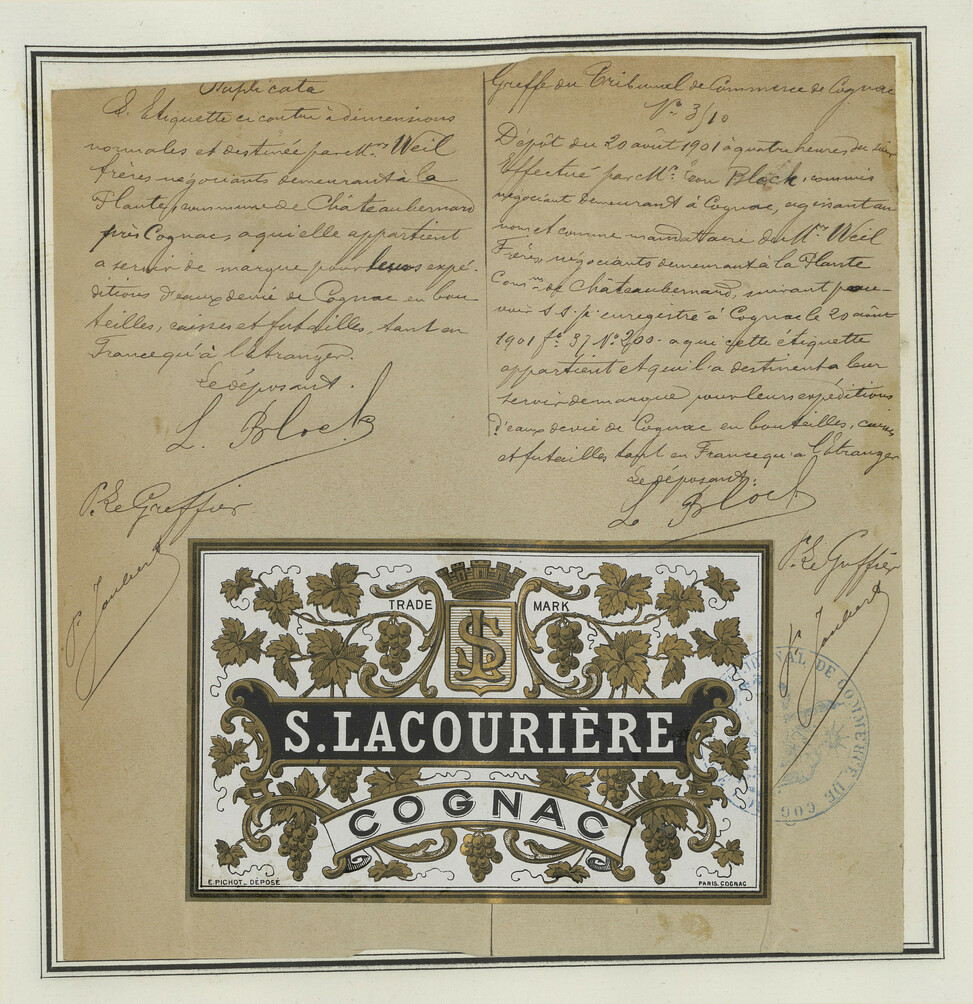 Duplicata
L'Etiquette ci contre à dimensions
normales et destinée par Mrs Weil
frères négociants demeurant à la
Plante, commune de Châteaubernard
près Cognac, à qui elle appartient
a servir de marque pour leurs expé-
ditions d'eaux de vie de Cognac en bou-
teilles, caisses et futailles, tant en
France qu'à l'étranger.
Le déposant.
L. Block
P. Le Greffier
P. Jaubert
Greffe du Tribunal de Commerce de Cognac
No 3/10
Dépôt du 20 août 1901 à quatre heures du soir
Effectué par Mr Léon Block, commis
négociant demeurant à Cognac, agissant au
nom et comme mandataire de Mrs Weil
Frères négociants demeurant à la Plante
Comne de Châteaubernard, suivant pou-
voir s.s.p. enregistré à Cognac le 20 août
1901 fo 37 No 200. a qui cette étiquette
appartient et qui l'a destinent a leur
servir de marque pour leurs expéditions
d'eaux de vie de Cognac en bouteilles, caisses
et futailles tant en France qu'a l'Etranger
Le déposant:
L. Block
P. Le Greffier
P. Jaubert
TRADE MARK
SL
S. LACOURIÈRE
COGNAC
E. PICHOT_DÉPOSÉ
PARIS. COGNAC
TRIBUNAL DE COMMERCE DE COG